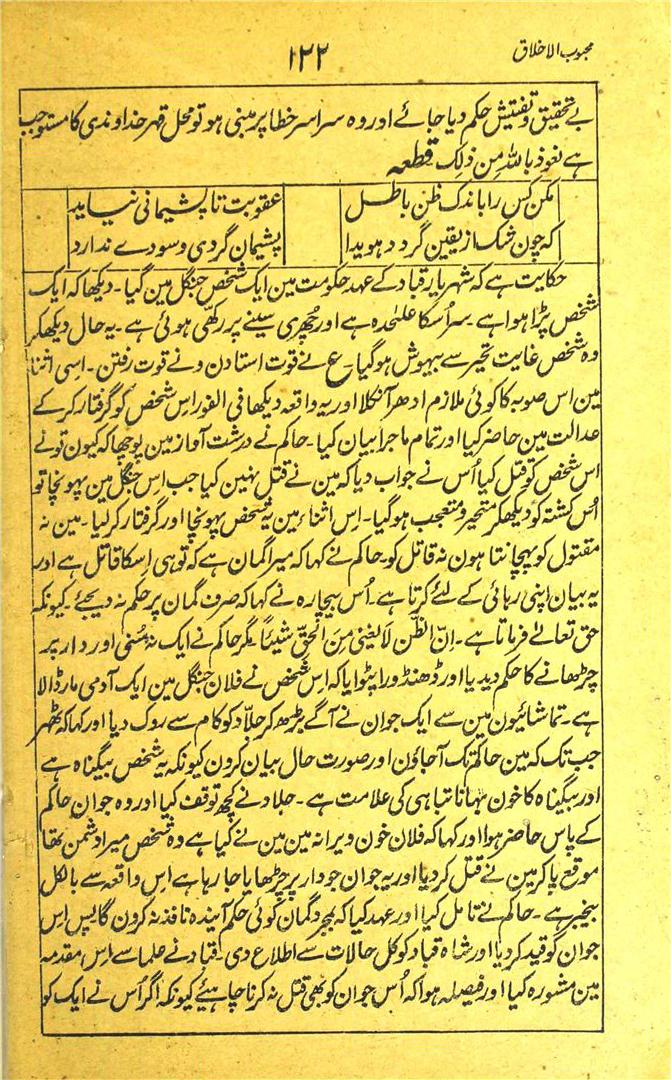 محبوب الاخلاق
۱۲۲
بے تحقیق و تفتیش حکم دیا جائے اور وہ سراسر خطا پر مبنی ہو تو محل قہر خداوندی کا مستوجب
ہے نعوذ باللہ من ذلک قطعہ
مکن کس را باندک ظن باطل عقوبت تا پشیمانی نیاید
کہ چون شک از یقین گردد ہویدا پشیمان گردی و سودے ندارد
حکایت ہے کہ شہریار قباد کے عہد حکومت مین ایک شخص جنگل مین گیا۔ دیکھا کہ ایک
شخص پڑا ہوا ہے۔ سر اُسکا علیٰحدہ ہے اور چُھری سینے پر رکھی ہوئی ہے۔ یہ حال دیکھکر
وہ شخص غایت تحیر سے بیہوش ہو گیا۔ ع نے قوت استادن و نے قوت رفتن۔ اسی اثنا
مین اس صوبہ کا کوئی ملازم ادھر آنکلا اور یہ واقعہ دیکھا فی الفور اِس شخص کو گرفتار کر کے
عدالت مین حاضر کیا اور تمام ماجرا بیان کیا۔ حاکم نے درشت آواز مین پوچھا کہ کیون تونے
اس شخص کو قتل کیا اُس نے جواب دیا کہ مین نے قتل نہین کیا جب اِس جنگل مین پہونچا تو
اُس کشتہ کو دیکھکر متحیر و متعجب ہو گیا۔ اِس اثناء مین یہ شخص پہونچا اور گرفتار کر لیا۔ مین نہ
مقتول کو پہچانتا ہون نہ قاتل کو۔ حاکم نے کہا کہ میرا گمان ہے کہ تو ہی اِسکا قاتل ہے اور
یہ بیان اپنی رہائی کے لئے کرتا ہے۔ اُس بیچارہ نے کہا کہ صرف گمان پر حکم نہ دیجئے۔ کیونکہ
حق تعالےٰ فرماتا ہے۔ اِنَّ الظَّن لَا یُغنی مِنَ الحَقِّ شَیئًا۔ مگر حاکم نے ایک نہ سُنی اور دار پر
چڑھانے کا حکم دیدیا اور ڈھنڈورا پٹوایا کہ اِس شخص نے فلان جنگل مین ایک آدمی مار ڈالا
ہے۔ تماشائیون مین سے ایک جوان نے آگے بڑھ کر جلّاد کو کام سے روک دیا اور کہا کہ ٹھہر
جب تک کہ مین حاکم تک آجاؤن اور صورت حال بیان کرون کیونکہ یہ شخص بیگناہ ہے
اور بیگناہ کا خون بہانا تباہی کی علامت ہے۔ جلاد نے کچھ توقف کیا اور وہ جوان حاکم
کے پاس حاضر ہوا اور کہا کہ فلان خون ویرانہ مین مین نے کیا ہے وہ شخص میرا دشمن تھا
موقع پا کر مین نے قتل کر دیا اور یہ جوان جو دار پر چڑھایا جا رہا ہے اس واقعہ سے بالکل
بیخبر ہے۔ حاکم نے تامل کیا اور عہد کیا کہ بمجرد گمان کوئی حکم آیندہ نافذ نہ کرون گا پس اِس
جوان کو قید کر دیا اور شاہ قباد کو کل حالات سے اطلاع دی۔ قباد نے علما سے اس مقدمہ
مین مشورہ کیا اور فیصلہ ہوا کہ اُس جوان کو بھی قتل نہ کرنا چاہئیے کیونکہ اگر اُس نے ایک کو